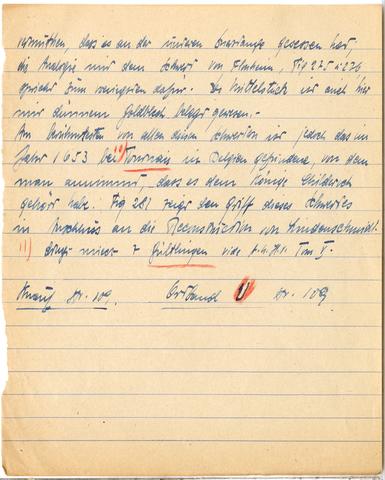 vermuthen, dass es an der unteren gesessen hat,
die Analogie mit dem Schwert von Flonheim, Fig 275 u 276
spricht zum wenigsten dafür. Das Mittelstück ist auch hier
mit dünnem Goldblech belegt gewesen. -
Am berühmtesten von allen diesen Schwertern ist jedoch das im
Jahr 1653 bei Tournai in Belgien gefundene, von dem
man annimmt, dass es dem Könige Childerich
gehört habe. Fig 281 zeigt den Griff dieses Schwertes
in Anschluss an die Reconstruction von Lindenschmidt.
11) Gültlingen vide Tom V.
Knauf Nr. 109. Ortband U Nr. 109